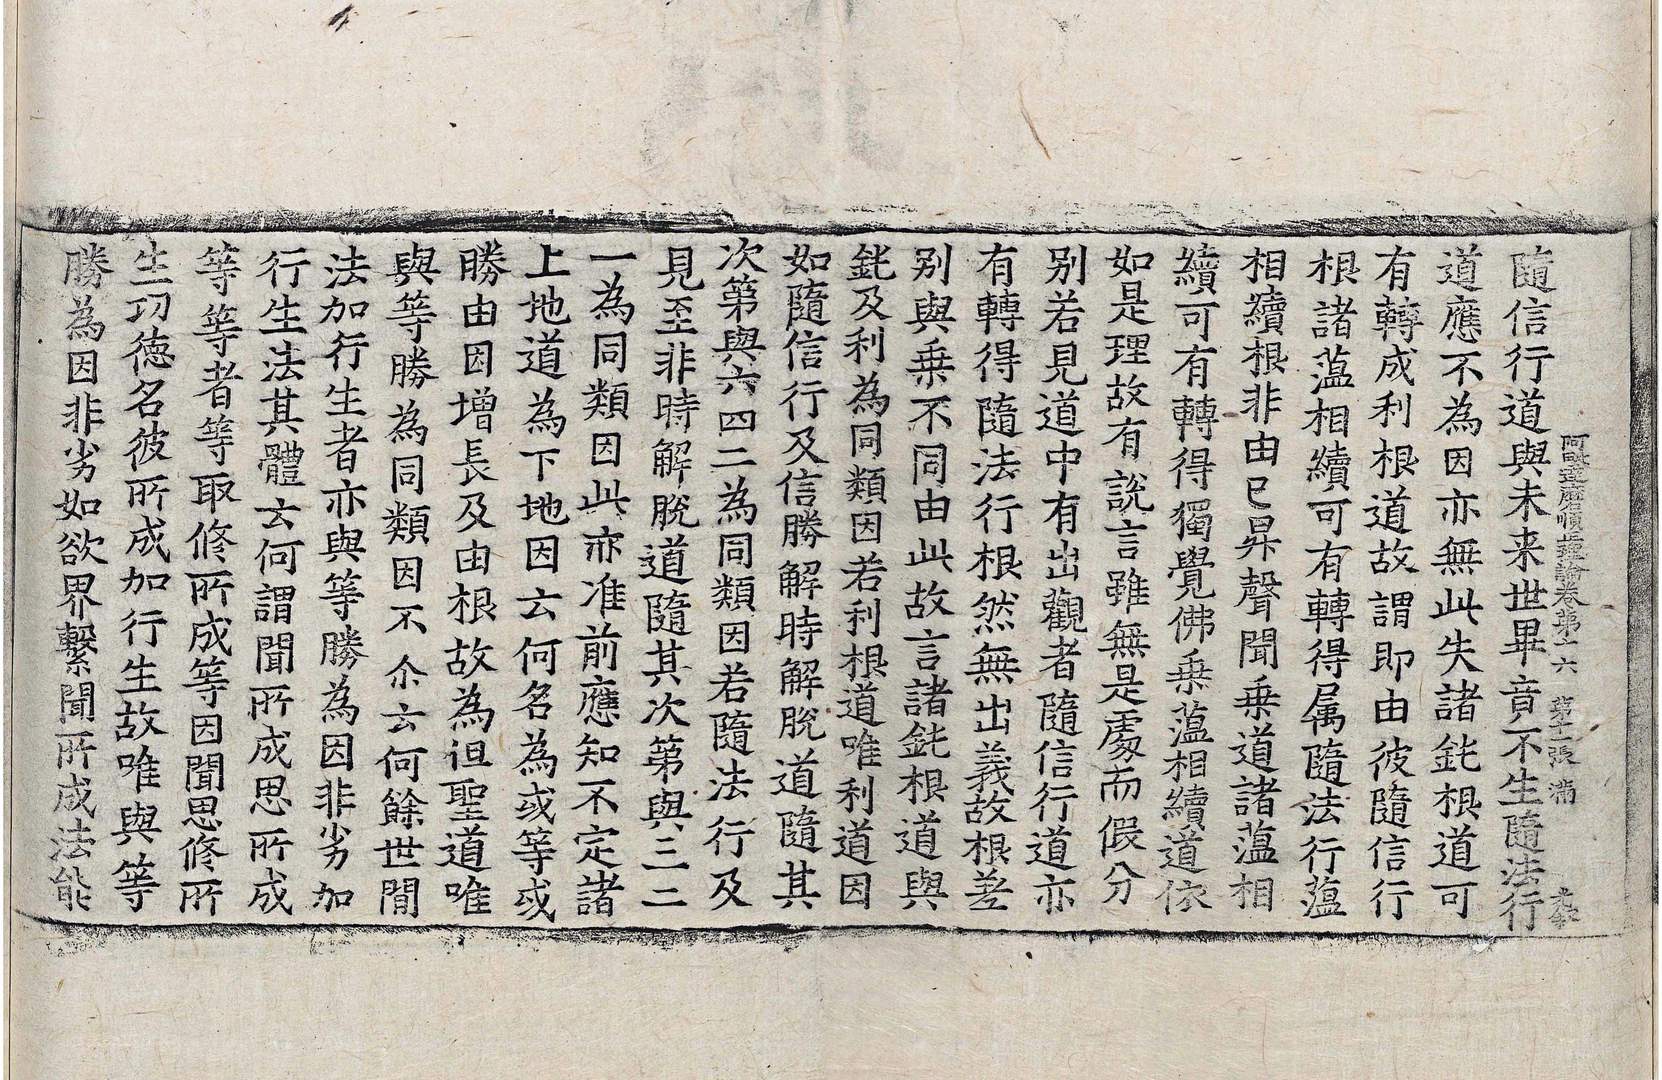 阿毗達磨順正理論卷第十六 第十一張 滿
隨信行道與未来世畢竟不生隨法行
道應不為因亦無此失諸鈍根道可
有轉成利根道故謂即由彼隨信行
根諸蘊相續可有轉得属隨法行蘊
相續根非由已昇聲聞乗道諸蘊相
續可有轉得獨覺佛乗蘊相續道依
如是理故有說言雖無是處而假分
别若見道中有出觀者隨信行道亦
有轉得隨法行根然無出義故根差
别與乗不同由此故言諸鈍根道與
鈍及利為同類因若利根道唯利道因
如隨信行及信勝解時解脫道隨其
次第與六四二為同類因若隨法行及
見至非時解脫道隨其次第與三二
一為同類因此亦准前應知不定諸
上地道為下地因云何名為或等或
勝由因增長及由根故為但聖道唯
與等勝為同類因不尒云何餘世間
法加行生者亦與等勝為因非劣加
行生法其體云何謂聞所成思所成
等等者等取修所成等因聞思修所
生功德名彼所成加行生故唯與等
勝為因非劣如欲界繫聞所成法能